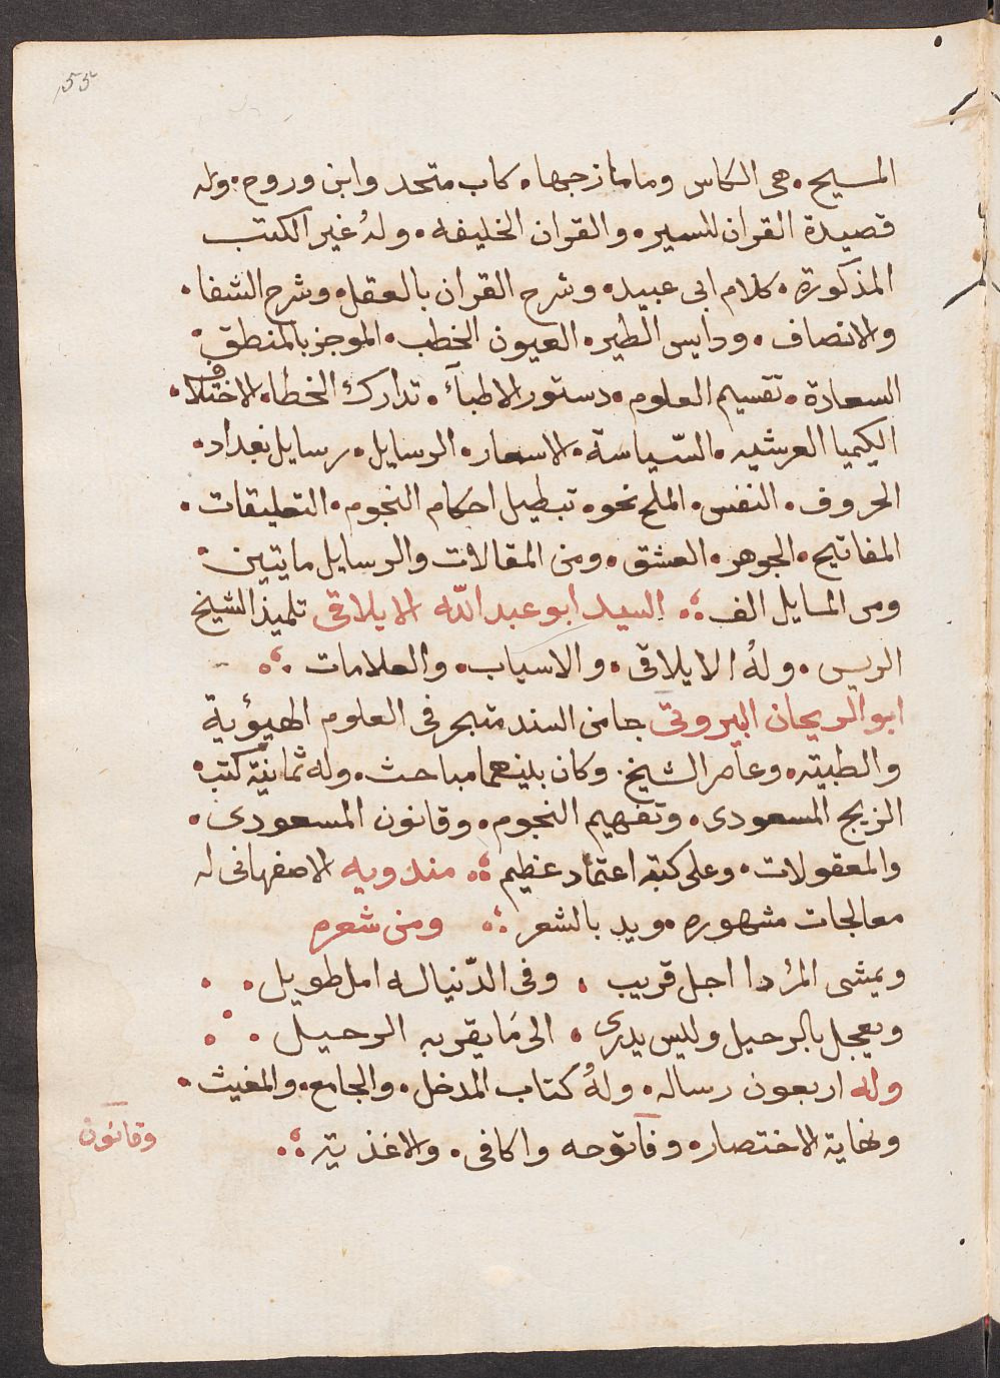 55
المسيح. هى الكاس وما مازجها. كاب متحد وابن وروح. وله
قصيدة القران للسيره والقران الخليفه. ولهُ غير الكتب
المذكورة. كلام ابى عبيد. وشرح القران بالعقل. وشرح الشفا.
والانصاف. ودايس الطير. العيون الخطب. الموجز بالمنطق.
السعادة. تقسيم العلوم. دستور الاطبآء. تدارك الخطا. الاختلاف.
الكيميا العرشيه. السّياسة. الاسعار. الرسايل. رسايل بغداد.
الحروف. النفس. الملح نحو. تبطيل احكام النجوم. التعليقات.
المفاتيح. الجوهر. العشق. ومن المقالات والرسايل مايتين.
ومن المسايل الف. السيد ابو عبد الله الايلاقى تلميذ الشيخ
الريس. ولهُ الايلاقى. والاسباب. والعلامات.
ابو الريحان البيرونى جا من السند متبحر فى العلوم الهيؤية
والطبيّه. وعاصر الشيخ. وكان بينهما مباحث. وله ثمانية كتب.
الزيج المسعودى. وتفهيم النجوم. وقانون المسعودى.
والمعقولات. وعلى كتبه اعتماد عظيم. مندويه الاصفهانى له
معالجات مشهوره. ويد بالشعر. ومن شعره
ويمشى المرُ ذا اجل قريب. وفى الدّنيا له امل طويل.
ويعجل بالرحيل وليس يدرى. الى مَا يقربه الرحيل.
وله اربعون رساله. ولهُ كتاب المدخل. والجامع. والمغيث.
ونهاية الاختصار. وفآتوحه واكافى. والاغذية.
وقانون